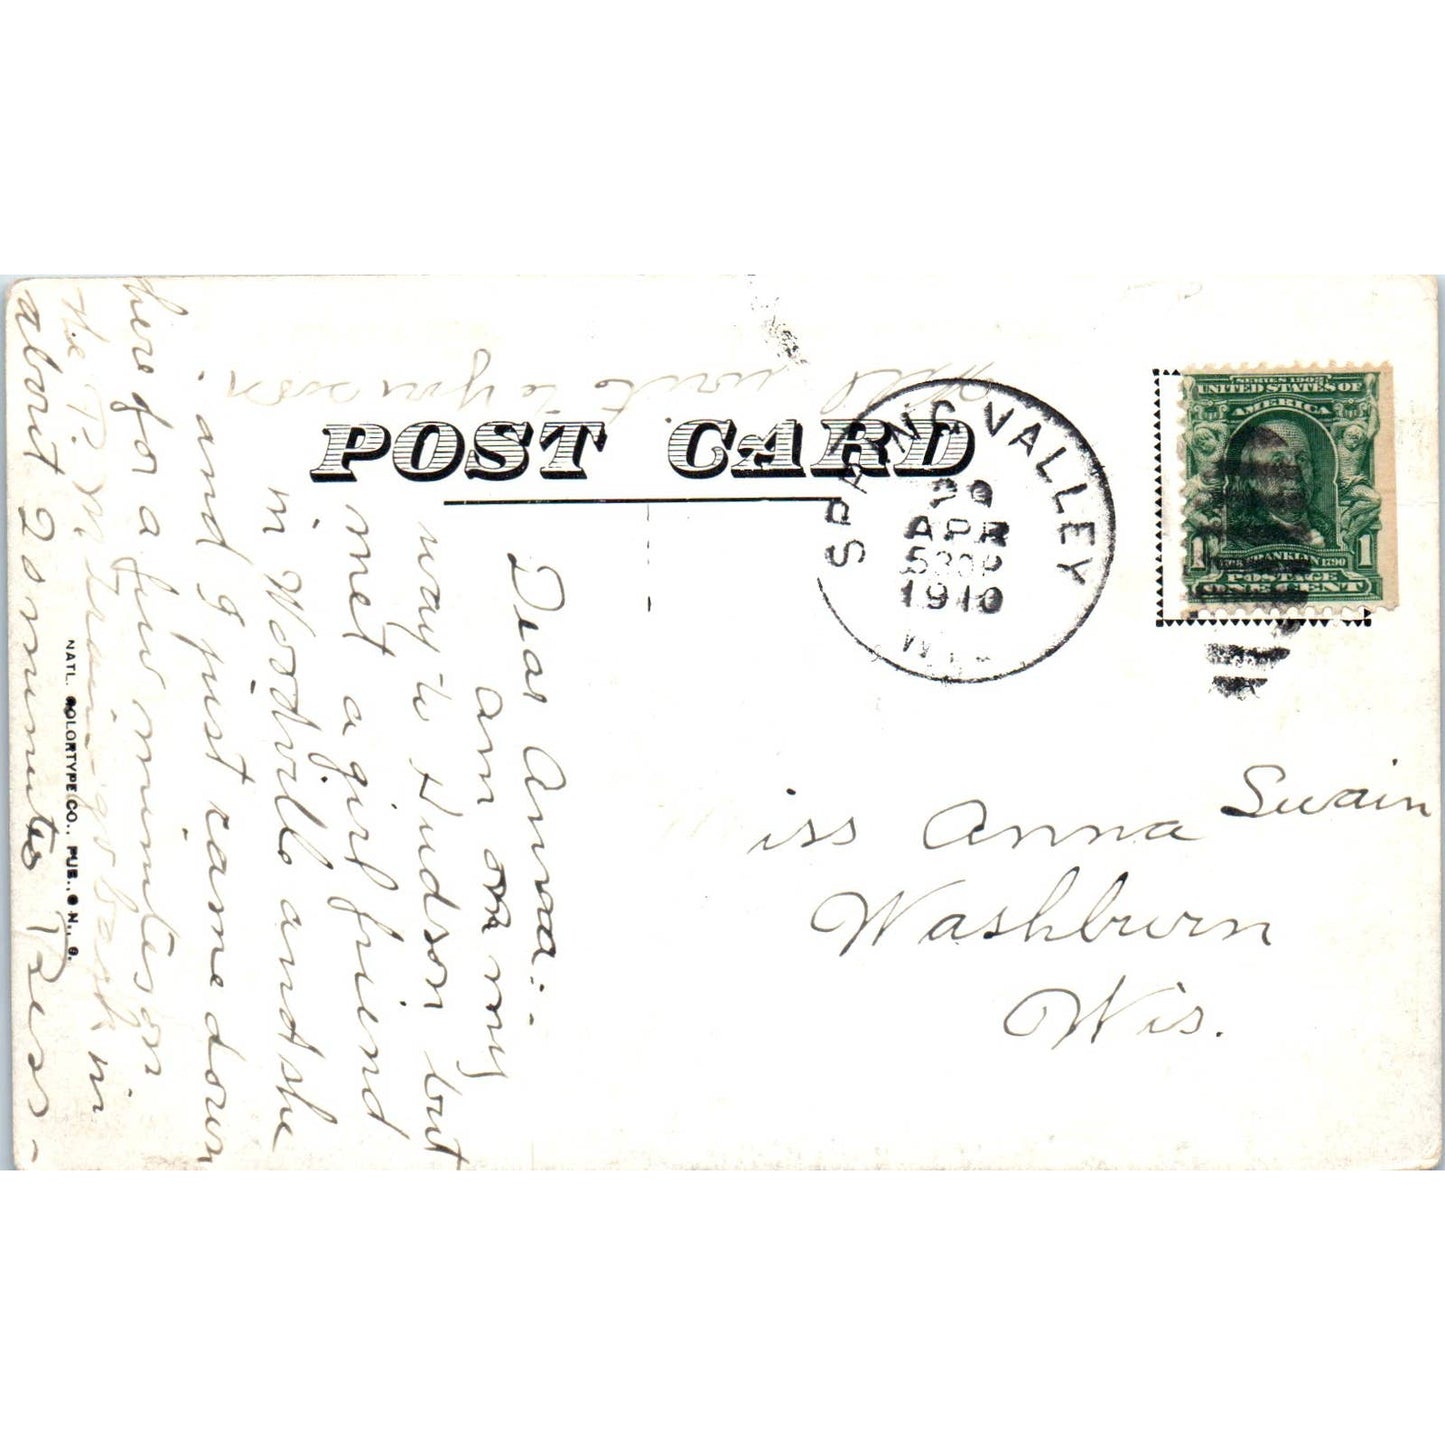 Will write to you soon.
POST CARD
SPRING VALLEY
29
APR
530P
1910
WIS
SERIES 1902
UNITED STATES OF
AMERICA
1 FRANKLIN 1790 1
POSTAGE
ONE CENT
Dear Anna:-
am on my
way to Hudson but
met a girl friend
in Woodville and she
and I just came down
here for a few minutes on
the P.M. train- go back in
about 20 minutes Tress-
iss Anna Swain
Washburn
Wis.
NATL. COLORTYPE CO., PUB., CIN., O.